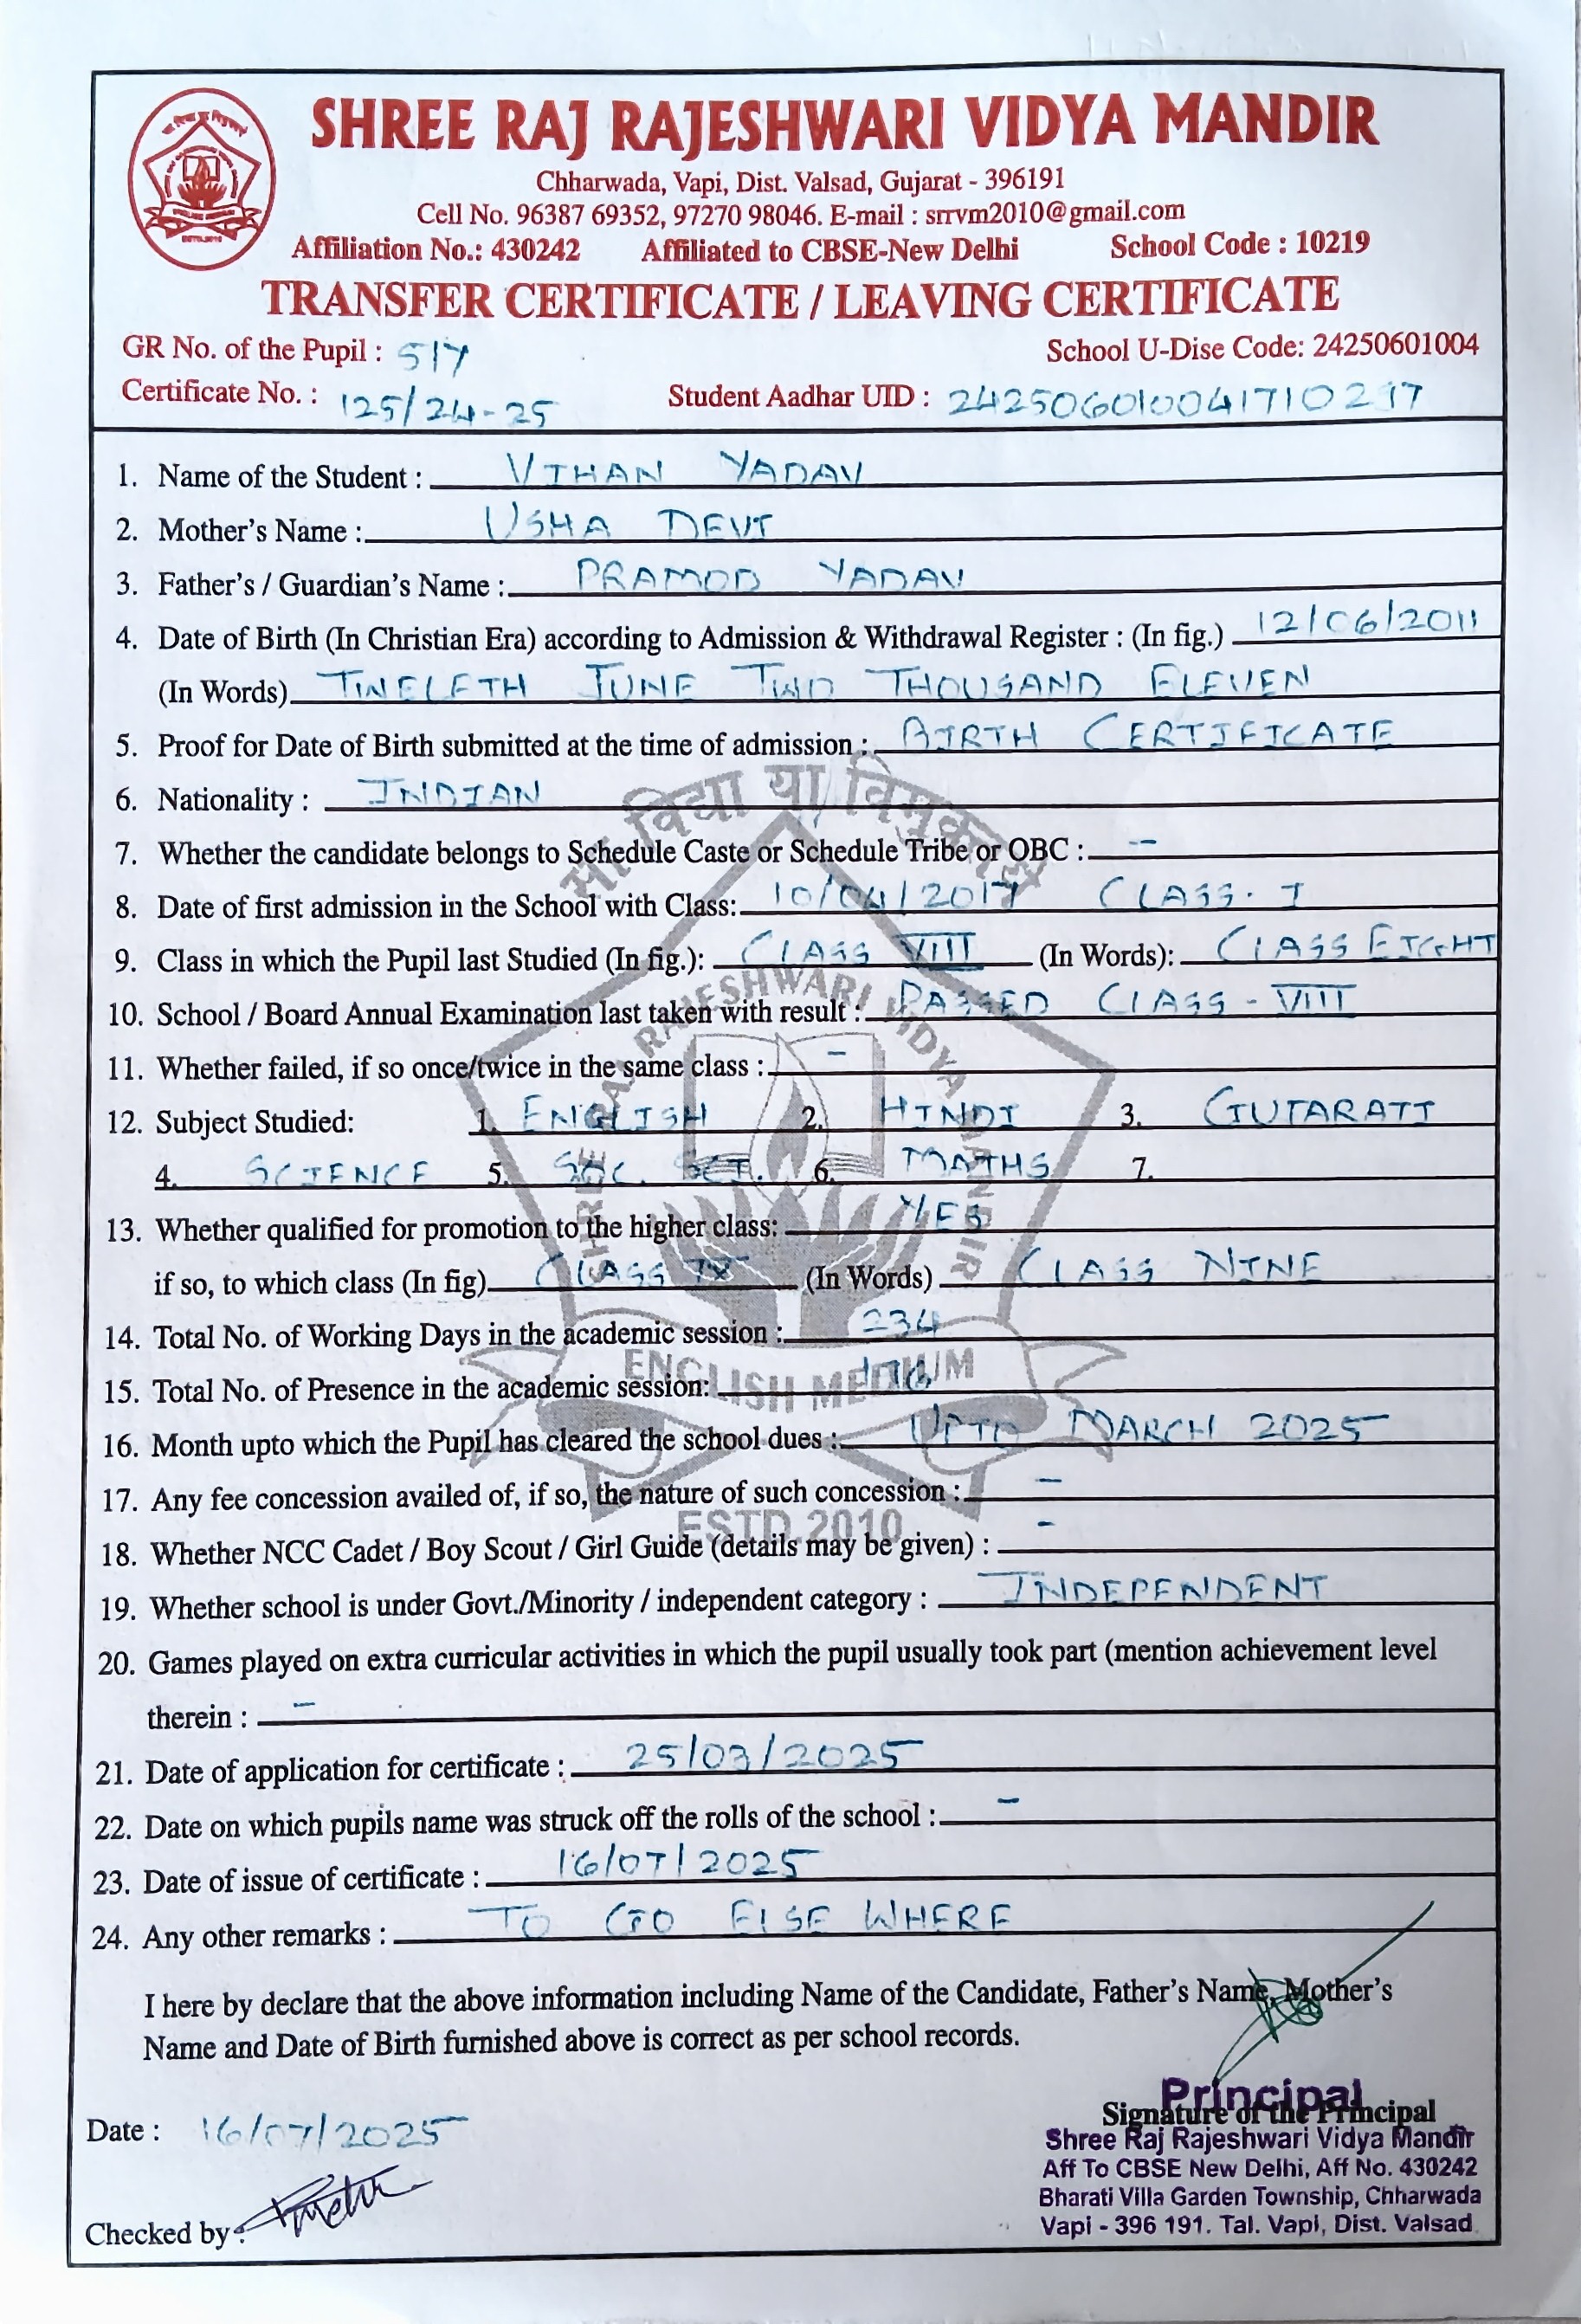 SHREE RAJ RAJESHWARI VIDYA MANDIR
Chharwada, Vapi, Dist. Valsad, Gujarat - 396191
Cell No. 96387 69352, 97270 98046. E-mail : srrvm2010@gmail.com
Affiliation No.: 430242 Affiliated to CBSE-New Delhi School Code : 10219
TRANSFER CERTIFICATE / LEAVING CERTIFICATE
GR No. of the Pupil : 517 School U-Dise Code: 24250601004
Certificate No. : 125/24-25 Student Aadhar UID : 242506010041710237
1. Name of the Student : VIHAN YADAV
2. Mother's Name : USHA DEVI
3. Father's / Guardian's Name : PRAMOD YADAV
4. Date of Birth (In Christian Era) according to Admission & Withdrawal Register : (In fig.) 12/06/2011
(In Words) TWELFTH JUNE TWO THOUSAND ELEVEN
5. Proof for Date of Birth submitted at the time of admission : BIRTH CERTIFICATE
6. Nationality : INDIAN
सा विद्या या विमुक्तये
7. Whether the candidate belongs to Schedule Caste or Schedule Tribe or OBC : --
8. Date of first admission in the School with Class: 10/04/2017 CLASS. I
9. Class in which the Pupil last Studied (In fig.): CLASS VIII (In Words): CLASS EIGHT
SHREE RAJ RAJESHWARI VIDYA MANDIR
10. School / Board Annual Examination last taken with result : PASSED CLASS - VIII
11. Whether failed, if so once/twice in the same class : -
12. Subject Studied: 1. ENGLISH 2. HINDI 3. GUJARATI
4. SCIENCE 5. SOC. SCI. 6. MATHS 7.
13. Whether qualified for promotion to the higher class: YES
if so, to which class (In fig) CLASS IX (In Words) CLASS NINE
14. Total No. of Working Days in the academic session : 234
ENGLISH MEDIUM
15. Total No. of Presence in the academic session:
16. Month upto which the Pupil has cleared the school dues : UPTO MARCH 2025
17. Any fee concession availed of, if so, the nature of such concession : -
ESTD. 2010
18. Whether NCC Cadet / Boy Scout / Girl Guide (details may be given) : -
19. Whether school is under Govt./Minority / independent category : INDEPENDENT
20. Games played on extra curricular activities in which the pupil usually took part (mention achievement level
therein : -
21. Date of application for certificate : 25/03/2025
22. Date on which pupils name was struck off the rolls of the school : -
23. Date of issue of certificate : 16/07/2025
24. Any other remarks : TO GO ELSE WHERE
I here by declare that the above information including Name of the Candidate, Father's Name, Mother's
Name and Date of Birth furnished above is correct as per school records.
Principal
Date : 16/07/2025 Signature of the Principal
Shree Raj Rajeshwari Vidya Mandir
Aff To CBSE New Delhi, Aff No. 430242
Bharati Villa Garden Township, Chharwada
Checked by : Vapi - 396 191. Tal. Vapi, Dist. Valsad